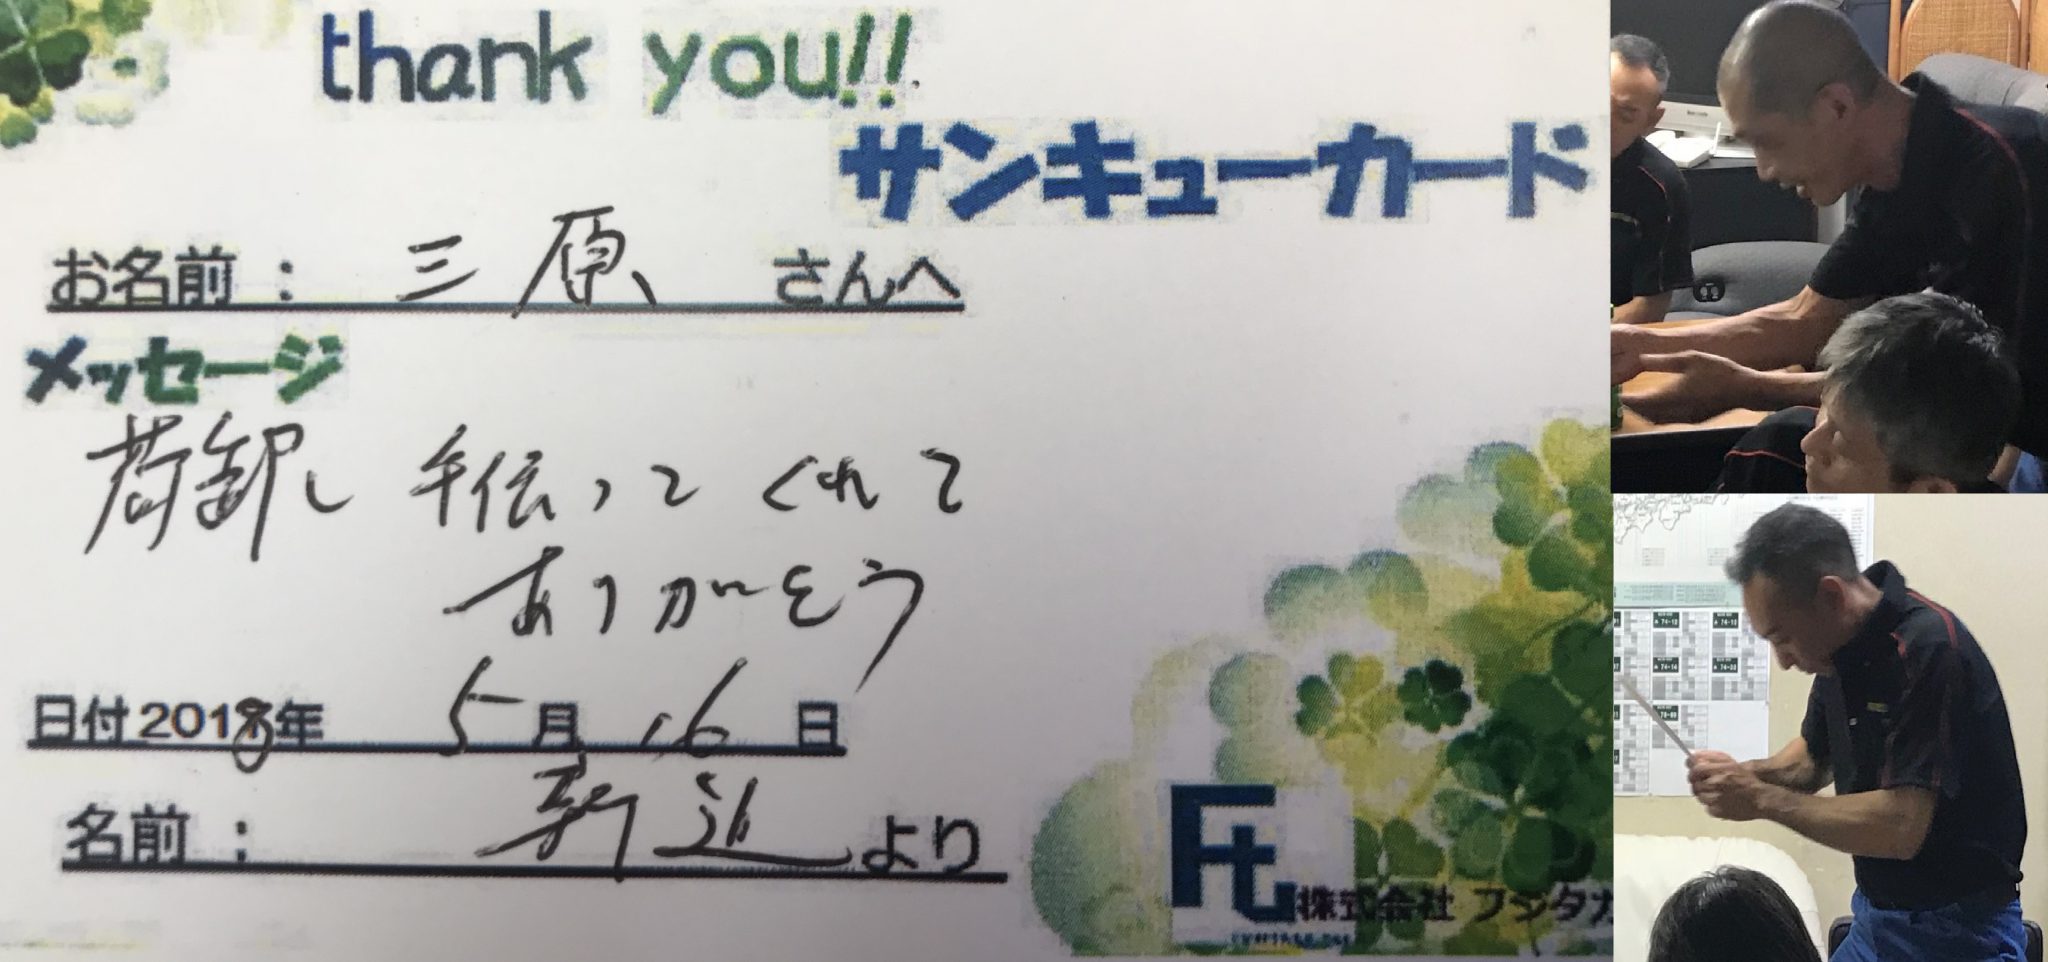 thank you!!
サンキューカード
お名前： 三原 さんへ
メッセージ
荷卸し 手伝ってくれて
ありがとう
日付2018年 5月 16日
名前： 新 より
株式会社 フジタカ
74-12
74-14